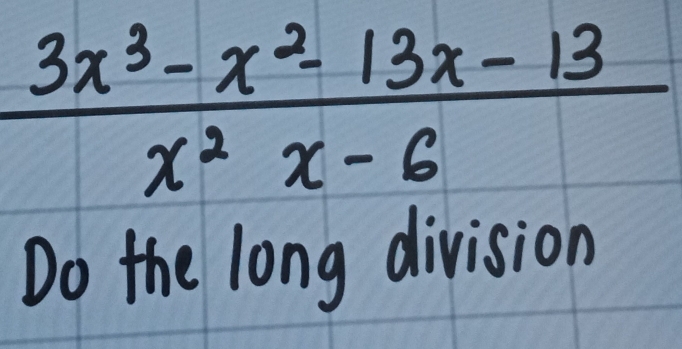 3x³ - x² - 13x - 13
x² x - 6
Do the long division